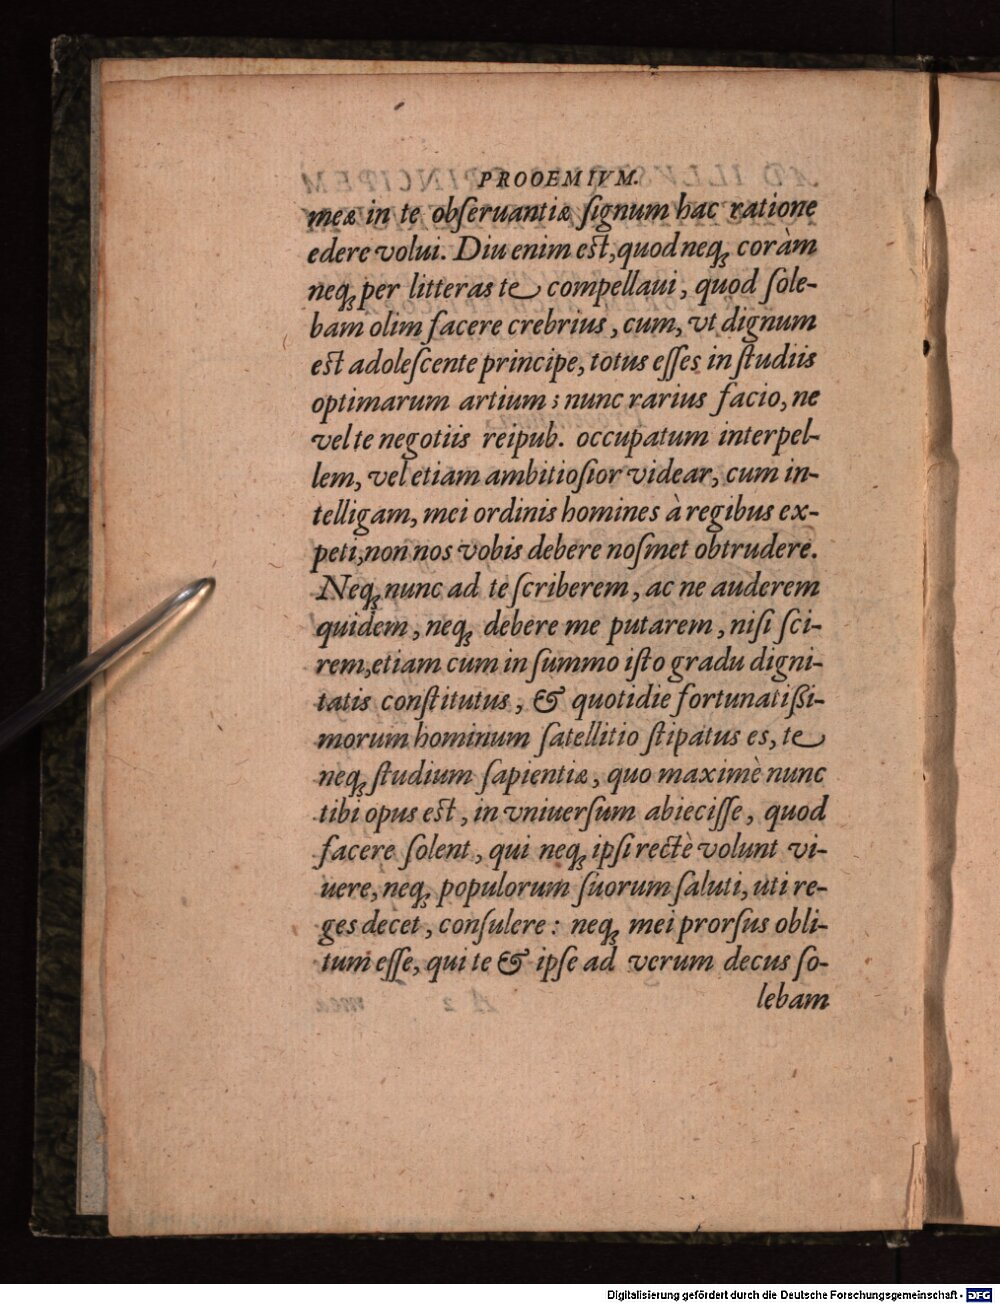 PROOEMIVM.
meæ in te obſeruantiæ ſignum hac ratione
edere volui. Diu enim eſt, quod neqꝫ coràm
neqꝫ per litteras te compellaui, quod ſole-
bam olim facere crebrius, cum, vt dignum
eſt adoleſcente principe, totus eſſes in ſtudiis
optimarum artium; nunc rarius facio, ne
vel te negotiis reipub. occupatum interpel-
lem, vel etiam ambitioſior videar, cum in-
telligam, mei ordinis homines à regibus ex-
peti, non nos vobis debere noſmet obtrudere.
Neqꝫ nunc ad te ſcriberem, ac ne auderem
quidem, neqꝫ debere me putarem, niſi ſci-
rem, etiam cum in ſummo iſto gradu digni-
tatis conſtitutus, & quotidie fortunatißi-
morum hominum ſatellitio ſtipatus es, te
neqꝫ ſtudium ſapientiæ, quo maximè nunc
tibi opus eſt, in vniuerſum abieciſſe, quod
facere ſolent, qui neqꝫ ipſi rectè volunt vi-
uere, neqꝫ populorum ſuorum ſaluti, uti re-
ges decet, conſulere: neqꝫ mei prorſus obli-
tum eſſe, qui te & ipſe ad verum decus ſo-
lebam
Digitalisierung gefördert durch die Deutsche Forschungsgemeinschaft - DFG